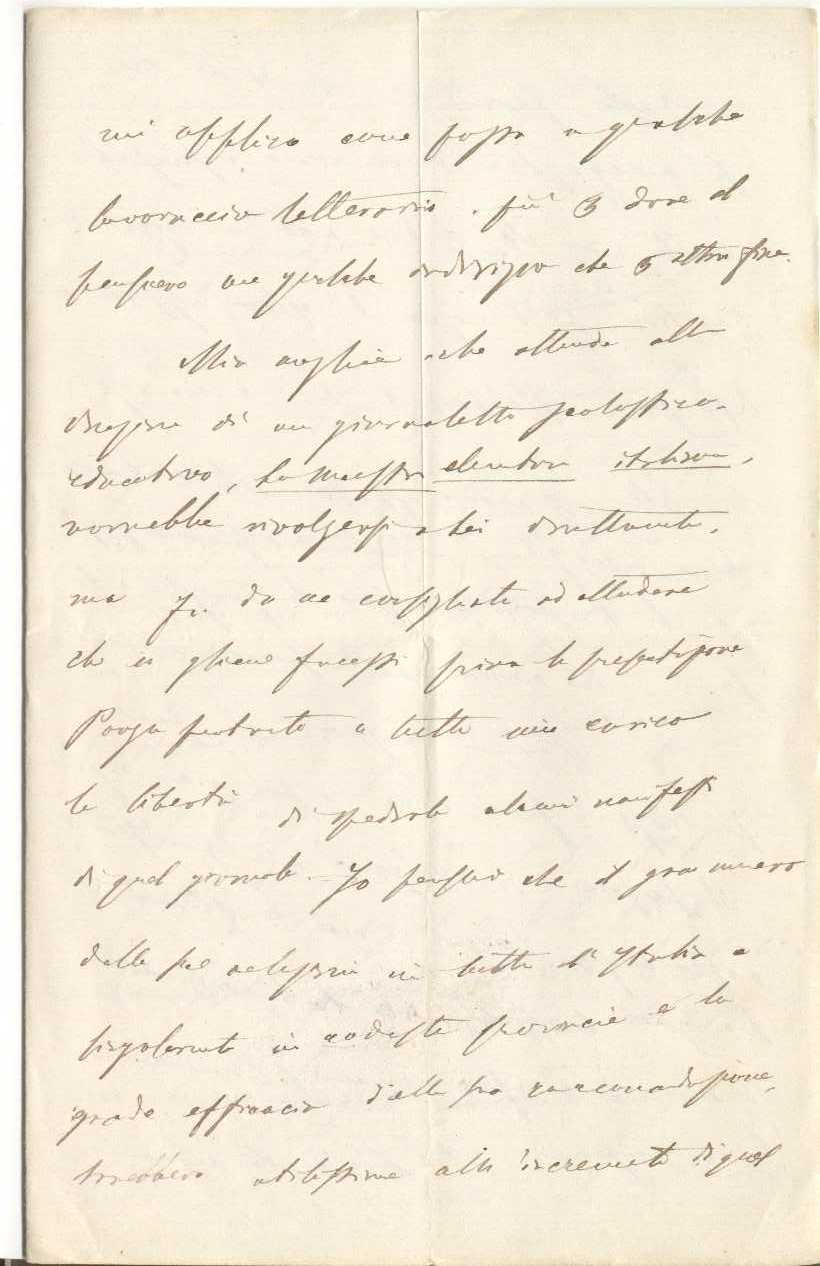 mi applico come posso a qualche
lavoruccio letterario. più dare al
pensiero un qualche indirizzo che altro fine.
Mia moglie che attende alla
di un giornaletto scolastico-
educativo, La Maestra elementare italiana,
vorrebbe rivolgersi a Lei direttamente,
ma fu da me consigliata ad attendere
che io gliene facessi prima la
Porga pertanto a tutto mio carico
la libertà di spedirle alcuni manifesti
di quel giornale. Io penserei che il gran numero
delle sue relazioni in tutta l'Italia e
singolarmente in codeste provincie e la
grande efficacia della sua raccomandazione,
sarebbero utilissime allo incremento di quel